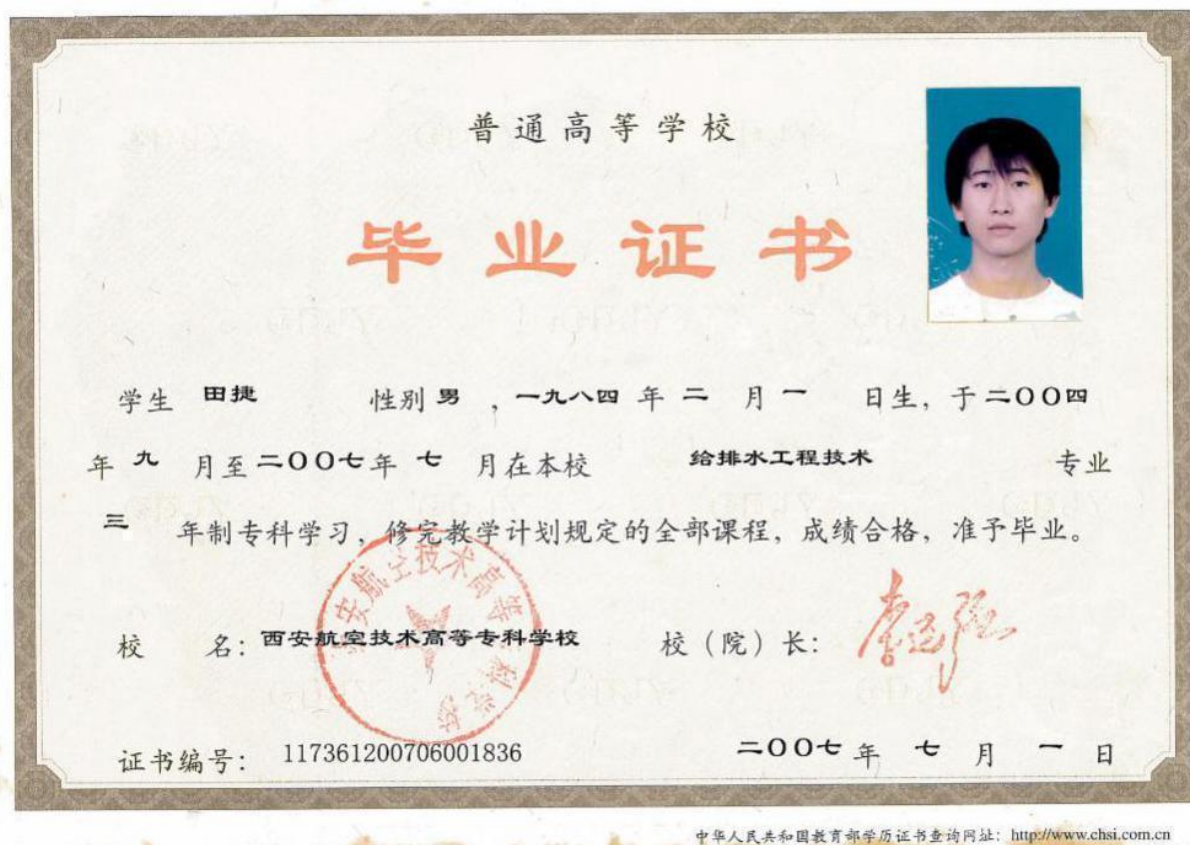 普通高等学校
毕业证书
学生 田捷 性别 男 ，一九八四 年 二 月 一 日生，于 二〇〇四
年 九 月至 二〇〇七 年 七 月在本校 给排水工程技术 专业
三 年制专科学习，修完教学计划规定的全部课程，成绩合格，准予毕业。
西安航空技术高等专科学校
校 名：西安航空技术高等专科学校 校（院）长：
证书编号： 117361200706001836 二〇〇七 年 七 月 一 日
中华人民共和国教育部学历证书查询网址：http://www.chsi.com.cn